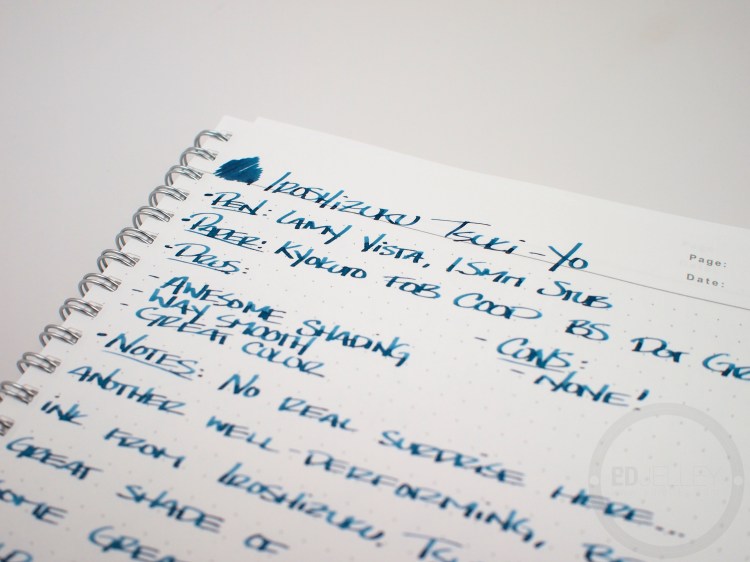 Iroshizuku Tsuki-Yo
Page:
• Pen: Lamy Vista, 1.5mm Stub
Date:
• Paper: Kyokuto FOB COOP B5 Dot Gr
• Pros:
- Awesome Shading
- Way Smooth
- Great Color
- Cons:
- None!
• Notes: No real surprise here...
Another well-performing,
ink from Iroshizuku. Ts
great shade of
some grea
ED